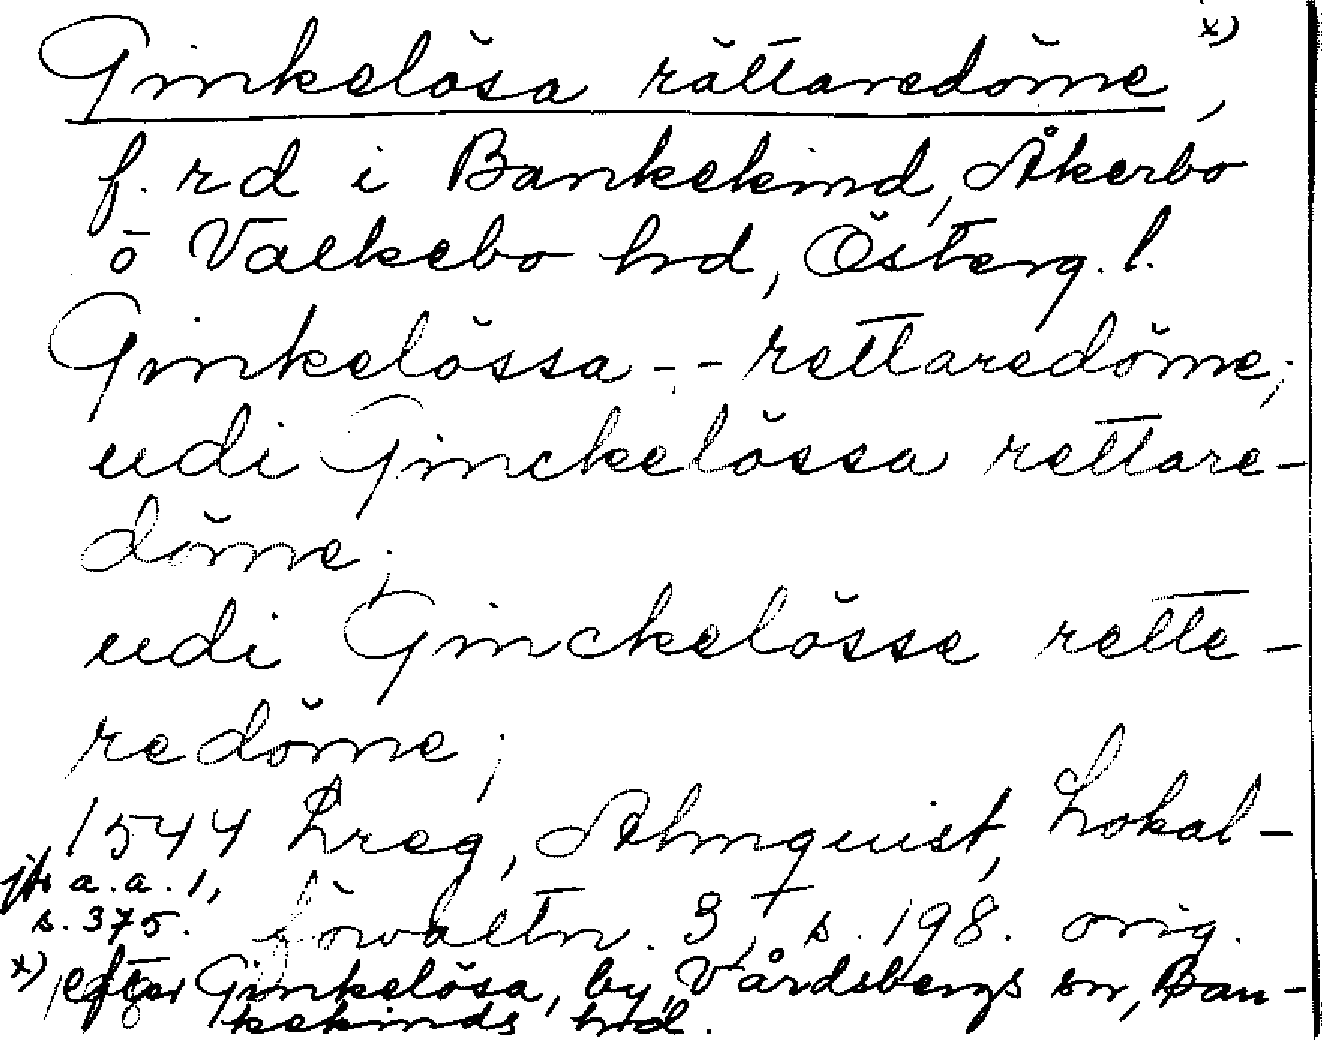 Ginkelösa rättaredöme x),
f. rd i Bankekind, Åkerbo
o Valkebo hrd, Österg. l.
Ginkelössa - - rettaredöme;
udi Ginckelössa rettare-
döme;
udi Ginckelösse rette-
redöme;
1544 Lreg, Almquist, Lokal-
förvaltn. 3, s. 198. orig.
jfr a.a. 1,
s. 375.
x) efter Ginkelösa, by, Vårdsbergs sn, Ban-
kekinds hrd.